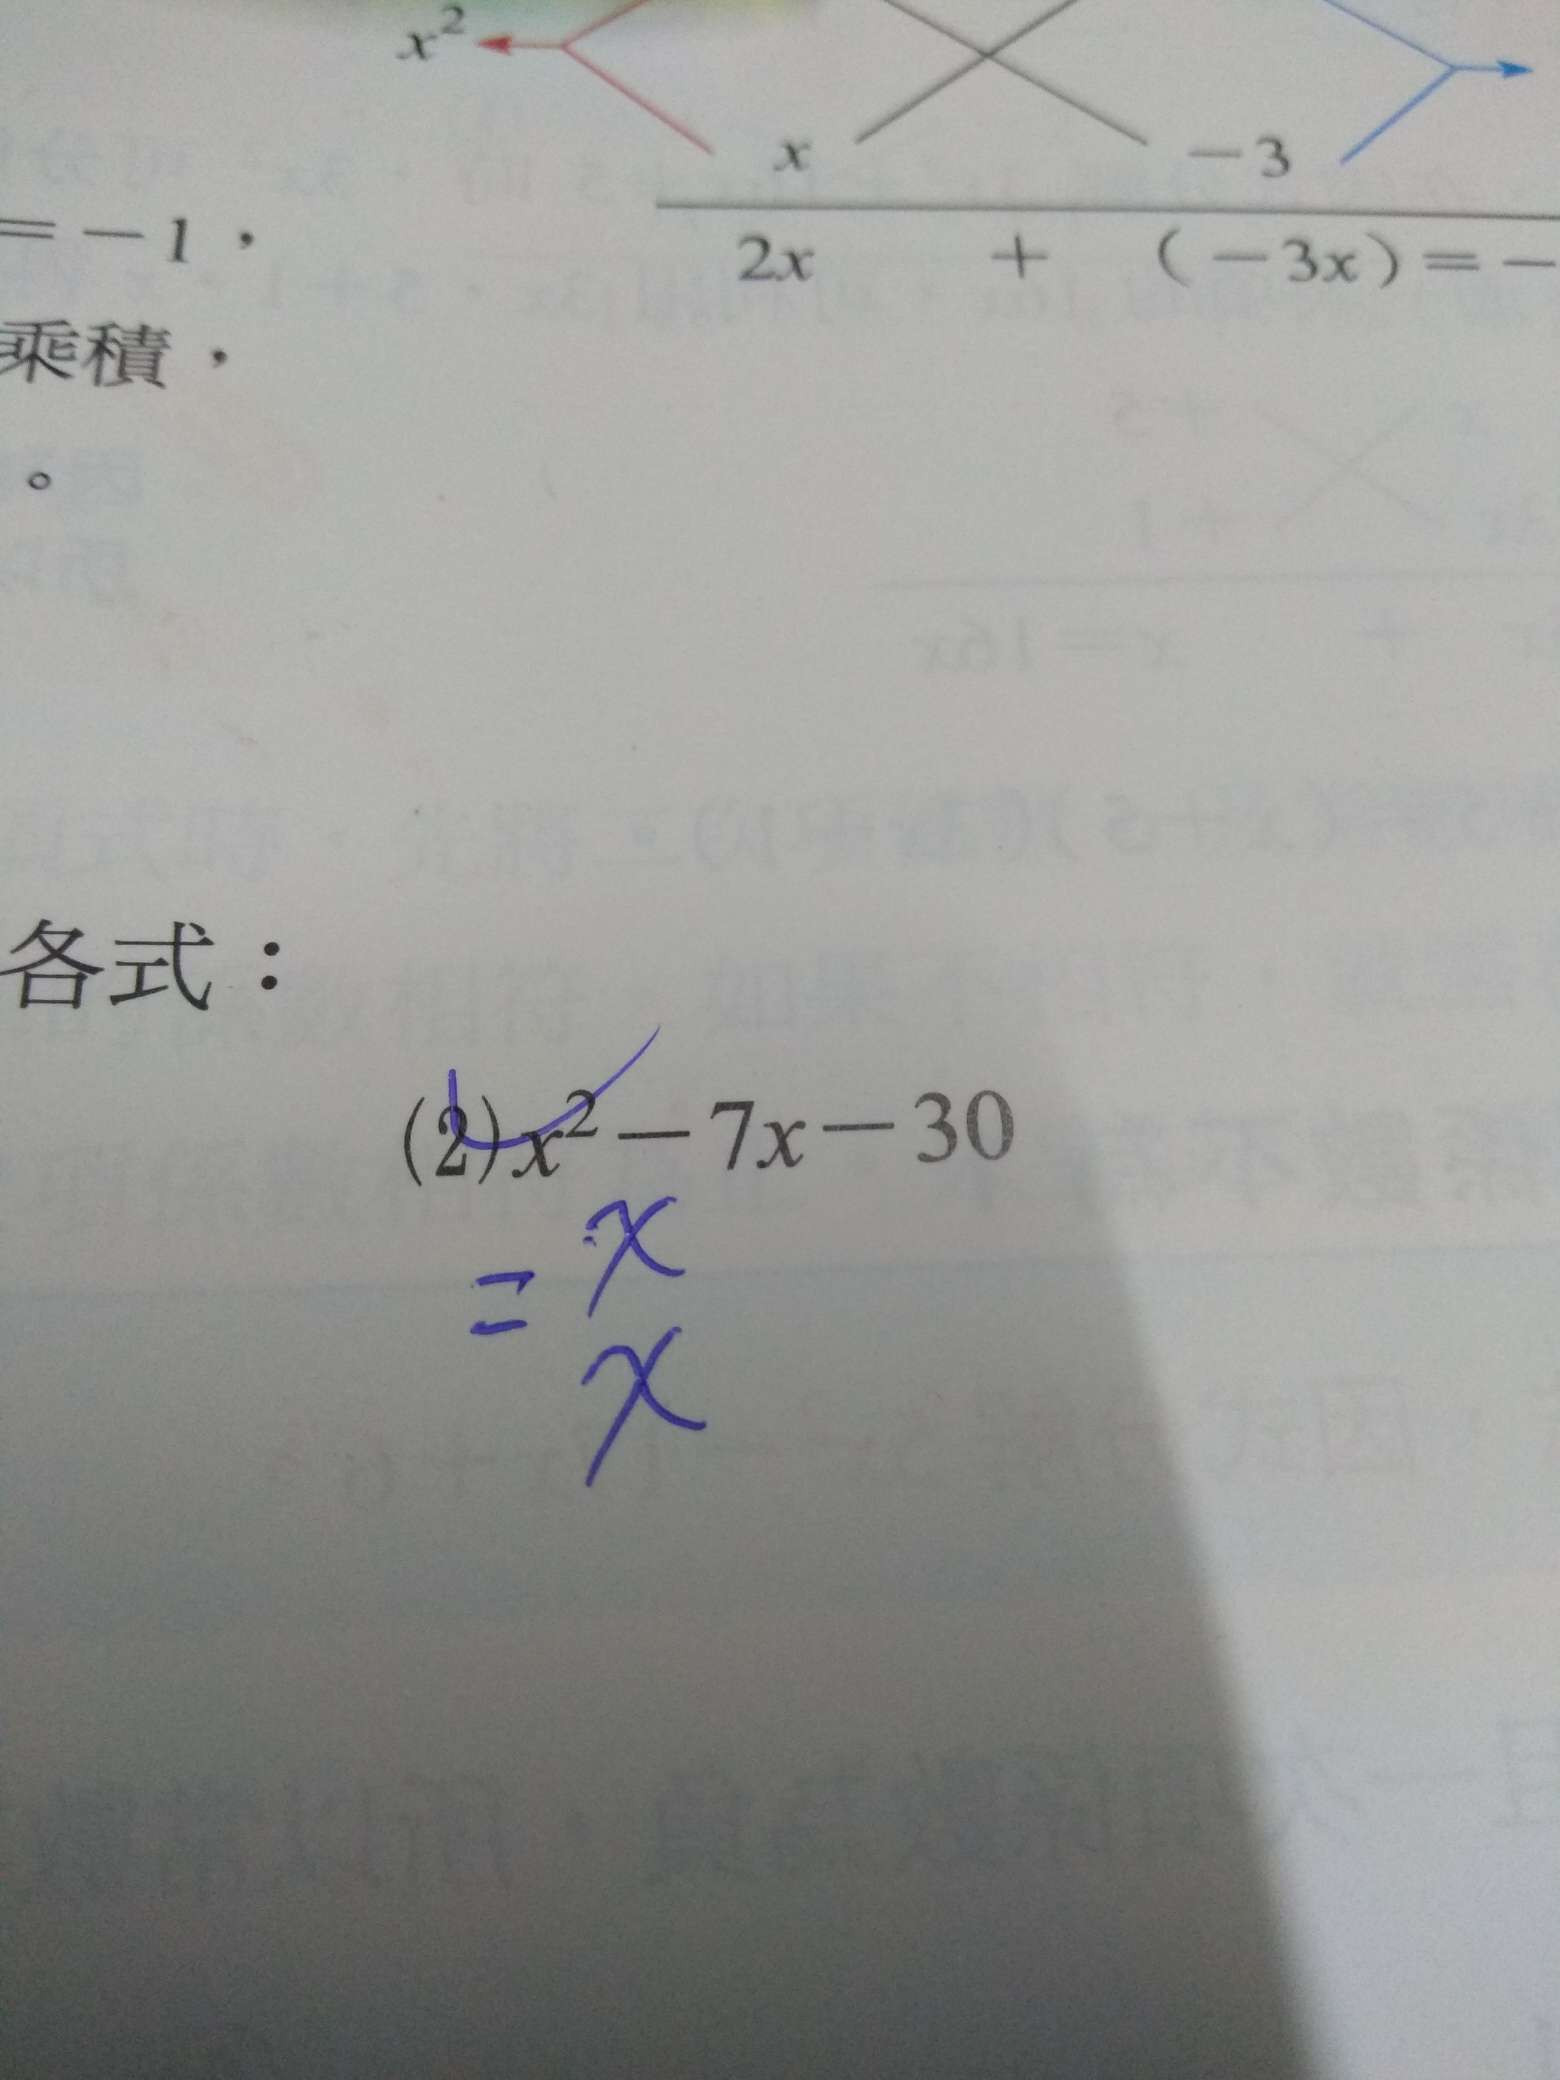 x²
x −3
=−1，
2x + (−3x)=−
乘積，
。
各式：
(2)x²−7x−30
= x
x